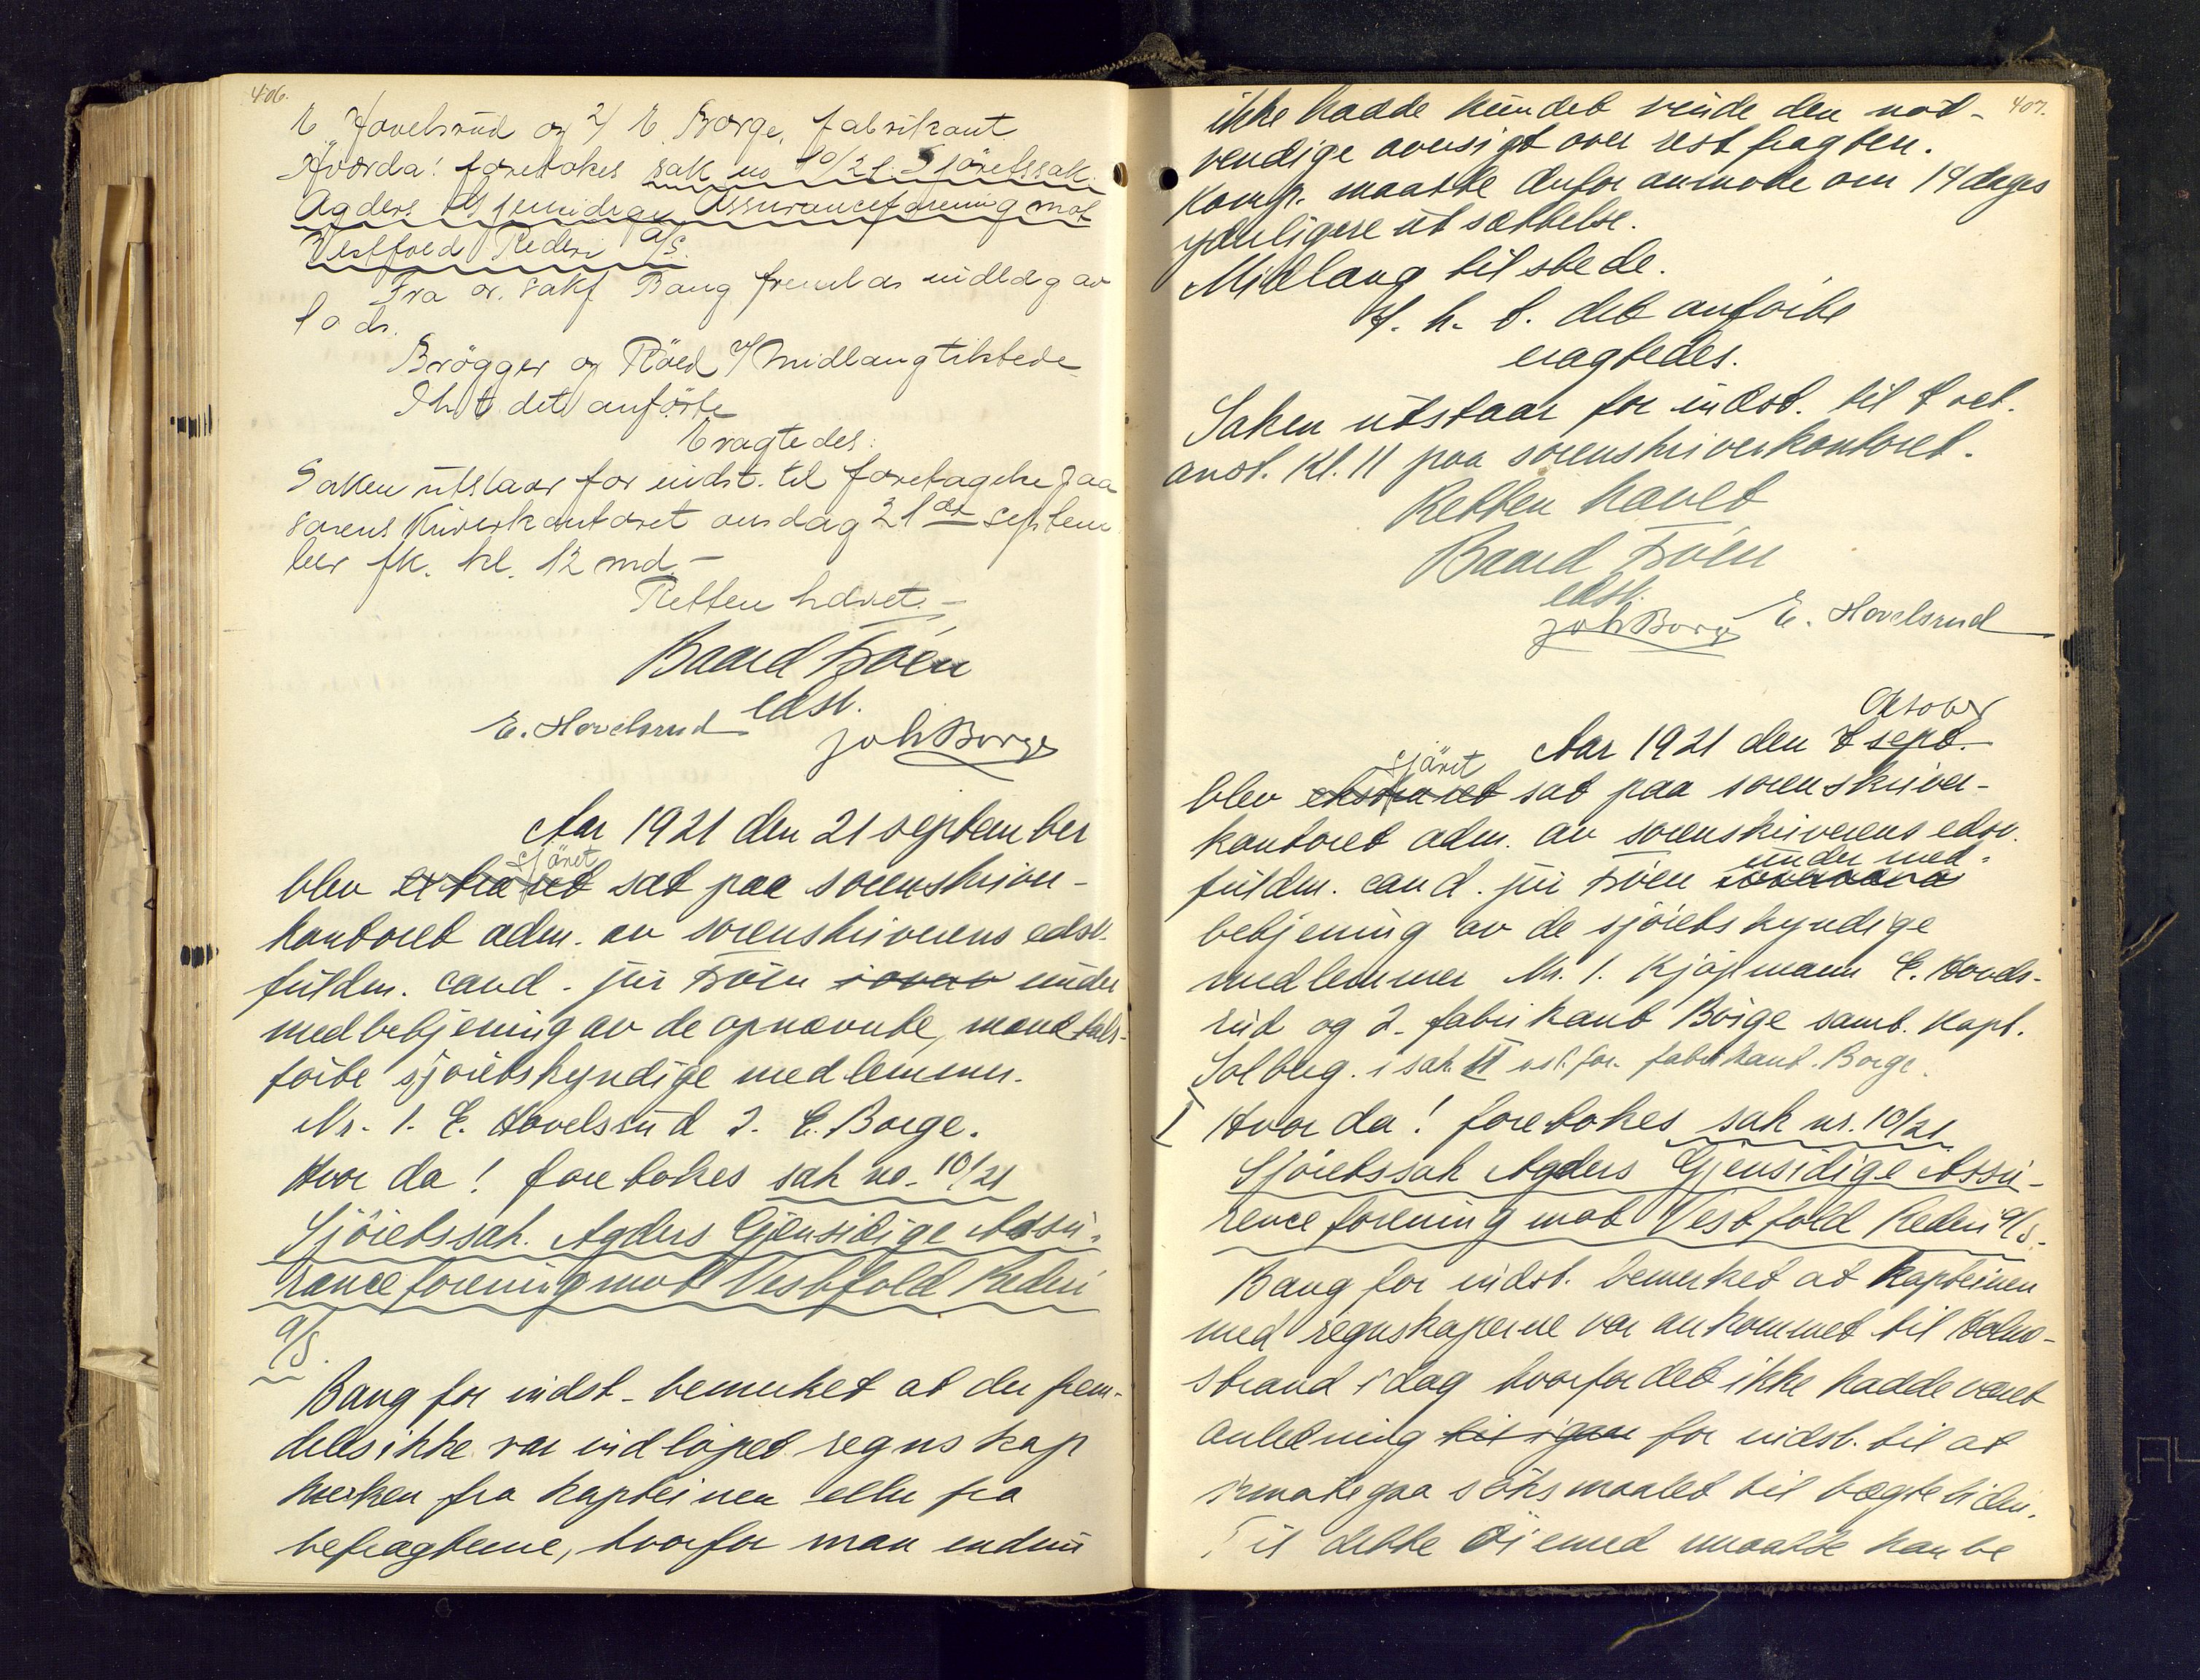 406.
E. Hovelsrud og 2/ E. Borge, fabrikant
Hvorda! foretokes sak no 10/21. Sjöretssak.
Agders gjensidige Assuranceforening mot
Vestfold Rederi A/S.
Fra o. sakf Bang fremlas indlæg av
10 ds.
Brögger og Röed v/ Midlang tilstede
I h t det anförte
Eragtedes:
Saken utstaar for indst. til foretagelse paa
sorenskriverkontoret onsdag 21de septem
ber fk. kl. 12 md. –
Retten hævet. –
Baard Tröen
edsv.
E. Hovelsrud
Joh Borge
Aar 1921 den 21 september
sjöret
blev extraret sat paa sorenskriver-
kontoret adm. av sorenskriverens edsv.
fuldm. cand. jur Tröen under
medbetjening av de opnævnte, mandtals-
förte sjöretskyndige medlemmer.
Nr. 1. E. Hovelsrud 2. E. Borge.
Hvor da! foretokes sak no. 10/21
Sjöretssak. Agders Gjensidige Assu-
ranceforening mot Vestfold Rederi
A/S.
Bang for indst. bemerket at der frem-
deles ikke var indlöpet regnskap
hverken fra kapteinen eller fra
befragterne, hvorfor man endnu
407.
ikke hadde kundet vinde den nöd-
vendige oversigt over restfragten.
Komp. maatte derfor anmode om 14 dages
yderligere utsættelse.
Midlang tilstede.
I. h. t. det anförte
eragtedes.
Saken utstaar for indst. til 8 oct.
anst. kl. 11 paa sorenskriverkontoret.
Retten hævet
Baard Tröen
edsv.
Joh Borge E. Hovelsrud
Oktober
Aar 1921 den 8 sept.
sjöret
blev ekstraret sat paa sorenskriver-
kontoret adm. av sorenskriverens edsv.
under med-
fuldm. cand. jur Tröen
betjening av de sjöretskyndige
medlemmer Nr. 1. Kjöpmann E. Hovels-
rud og 2. fabrikant Borge samt. Kapt.
Solberg. i sak II ist. for. fabrikant. Borge.
I Hvor da! foretokes sak nr. 10/21
Sjöretssak Agders Gjensidige Assu-
ranceforening mot Vestfold Rederi A/S.
Bang for indst. bemerket at kapteinen
med regnskaperne var ankommet til Holme-
strand idag hvorfor det ikke hadde været
anledning til igaar for indst. til at
imötegaa söksmaalet til bægte tider.
Til dette öiemed maatte han be